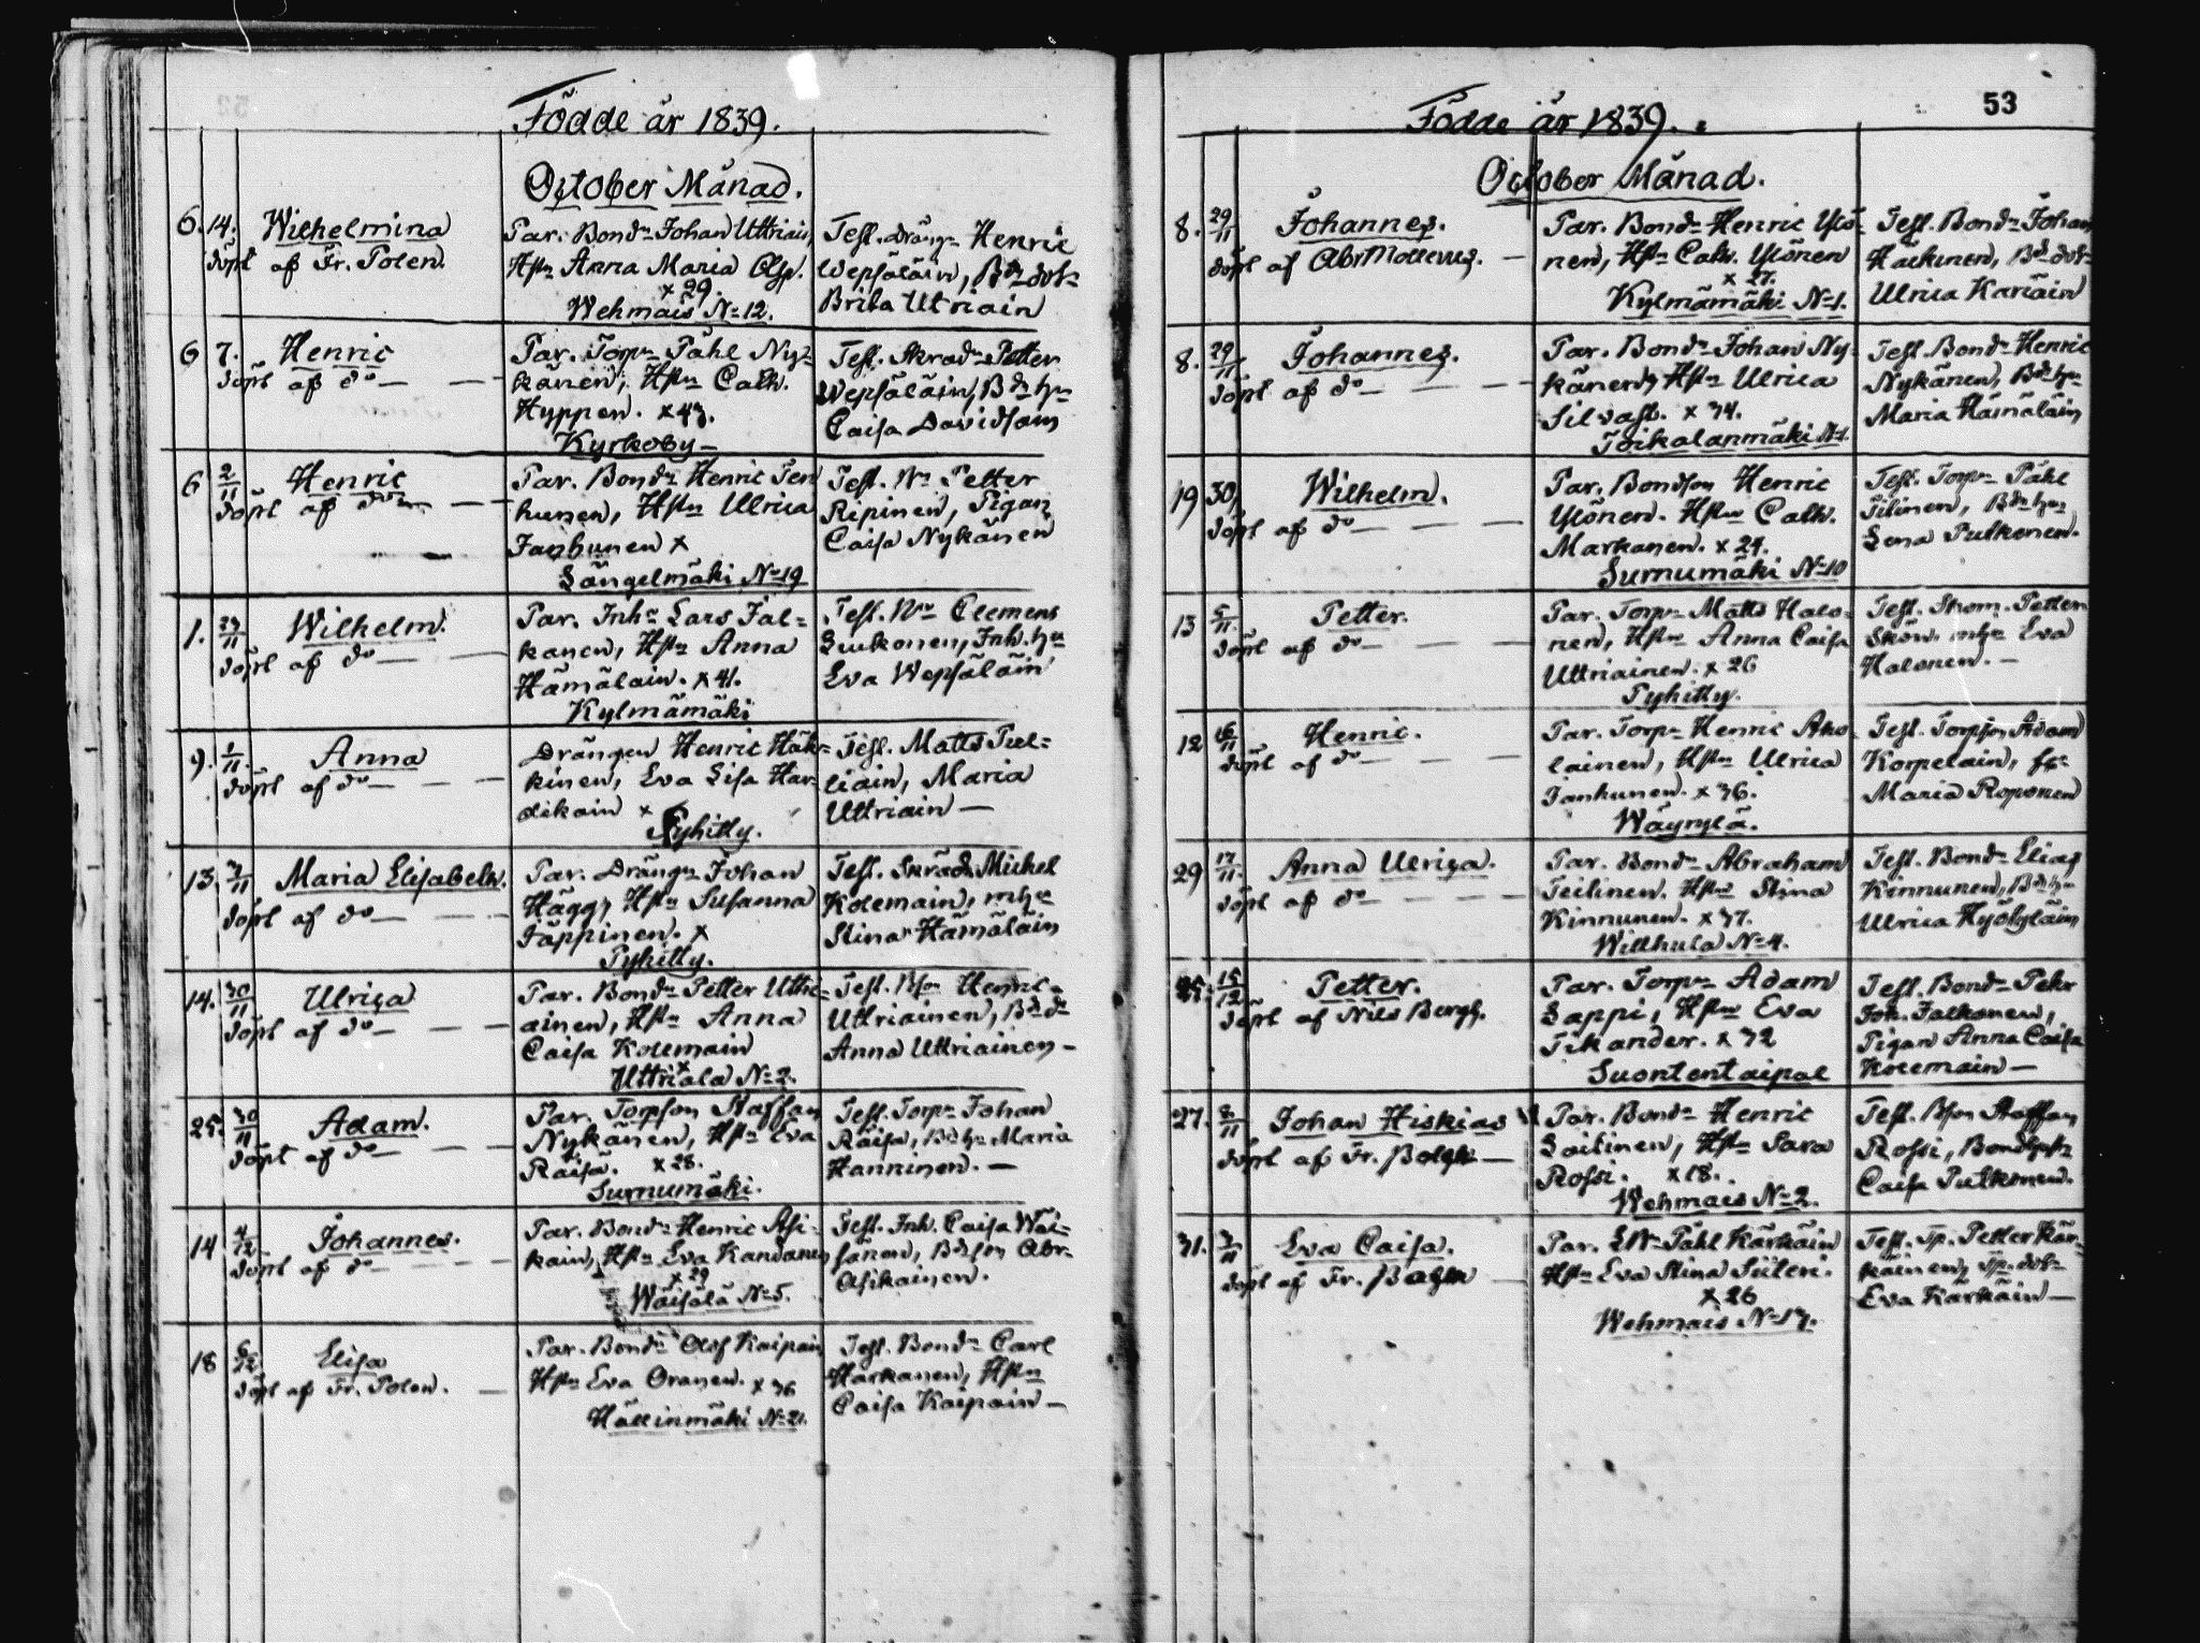 Födde år 1839.
October Månad.
6. 14. Wilhelmina
döpt af Fr. Polen.
Par. Bondn Johan Uttriain,
Hstn Anna Maria Olsp.
x 29.
Wehmais No 12.
Test. drängn Henric
Wepsäläin, Bdn dotr
Brita Utriain
6 7. Henric
döpt af do
Par. Torpn Påhl Ny-
känen, Hstn Cath.
Hyppen. x 43.
Kyrkoby
Test. Skradn Petter
Wepsäläin, Bdn hu
Caisa Davidsson
6 2/11 Henric
döpt af do
Par. Bondn Henric Jan
hunen, Hstn Ulrica
Janhunen x
Längelmäki No 19
Test. Petter
Ripinen, Pigan
Caisa Nykänen
1. 29/11 Wilhelm.
döpt af do
Par. Inhn Lars Jal=
kanen, Hstn Anna
Hämäläin. x 41.
Kylmämäki
Test. Clemens
Luukonen, Inh. hu
Eva Wepsäläin
9. 1/11. Anna
döpt af do
Drängen Henric Häk=
kinen, Eva Lisa Har-
dikain x
Pyhitty.
Test. Matts Pul=
liain, Maria
Uttriain
13. 3/11 Maria Elisabeth.
döpt af do
Par. Drängn Johan
Hägg, Hstn Susanna
Jäppinen. x
Pyhitty.
Test. Skräd. Michel
Kolemain, mhu
Stina Hämäläin
14. 30/11 Ulrica
döpt af do
Par. Bondn Petter Uttri=
ainen, Hstn Anna
Caisa Kolemain
x
Uttriala No 2.
Test. Bson Henric
Uttriainen, Bdn dr
Anna Uttriainen
25. 30/11 Adam.
döpt af do
Par. Torpson Staffan
Nykänen, Hstn Eva
Räisä. x 28.
Surnumäki.
Test. Torpn Johan
Räisä, Bd hu Maria
Hanninen.
14 4/12 Johannes.
döpt af do
Par. Bondn Henric Asi-
kain, Hstn Eva Kandanen
x 29
Wäisälä No 5.
Test. Inh. Caisa Wäi=
sänen, Bdson Abr.
Asikainen.
18 6/12 Elisa
döpt af Fr. Polen.
Par. Bondn Olof Kaipain
Hstn Eva Oranen. x 36
Hällinmäki No 21.
Test. Bondn Carl
Harkanen, Hstn
Caisa Kaipain
53
Födde år 1839.
October Månad.
8. 29/11 Johannes.
döpt af Abr Molerus.
Par. Bondn Henric Ylö-
nen, Hstn Cath. Ylönen
x 27.
Kylmämäki No 1.
Test. Bondn Johan
Häkinen, Bd dotr
Ulrica Kariain
8. 29/11 Johannes.
döpt af do
Par. Bondn Johan Ny-
känen, Hstn Ulrica
Silvast. x 34.
Toikalanmäki No 1.
Test. Bondn Henric
Nykänen, Bdn hu
Maria Hämäläin
19 30/ Wilhelm.
döpt af do
Par. Bondson Henric
Ylönen. Hstn Cath.
Markanen. x 24.
Surnumäki No 10
Test. Torpn Påhl
Tilinen, Bdn hu
Lena Pulkonen.
13 5/11. Petter.
döpt af do
Par. Torpn Matts Halo-
nen, Hstn Anna Caisa
Uttriainen. x 26
Pyhitty.
Test. Skom. Petter
Sköu. mhu Eva
Halonen.
12 16/11 Henric.
döpt af do
Par. Torpn Henric Aho
lainen, Hstn Ulrica
Janhunen. x 36.
Wäyrylä.
Test. Torpson Adam
Korpelain,
Maria Roponen
29 17/11. Anna Ulrica.
döpt af do
Par. Bondn Abraham
Teilinen. Hstn Stina
Kinnunen. x 37.
Willhula No 4.
Test. Bondn Elias
Kinnunen, Bdn hu
Ulrica Hyötyläin
25. 15/12 Petter.
döpt af Nils Bergh.
Par. Torpn Adam
Lappi, Hstn Eva
Tikander. x 32
Suontentaipal
Test. Bondn Pehr
Joh. Jalkonen,
Pigan Anna Caisa
Kolemain
27. 8/11 Johan Hiskias
döpt af Fr. Polen
Par. Bondn Henric
Laitinen, Hstn Sara
Rossi. x 18.
Wehmais No 2.
Test. Bson Staffan
Rossi, Bondhustr
Caisa Pulkonen.
31. 3/11 Eva Caisa.
döpt af Fr. Polen
Par. Påhl Kärkäin
Hstn Eva Stina Siiteri.
x 26
Wehmais No 17.
Test. Tp. Petter Kär-
käinen, Tp. dotr
Eva Kärkäin